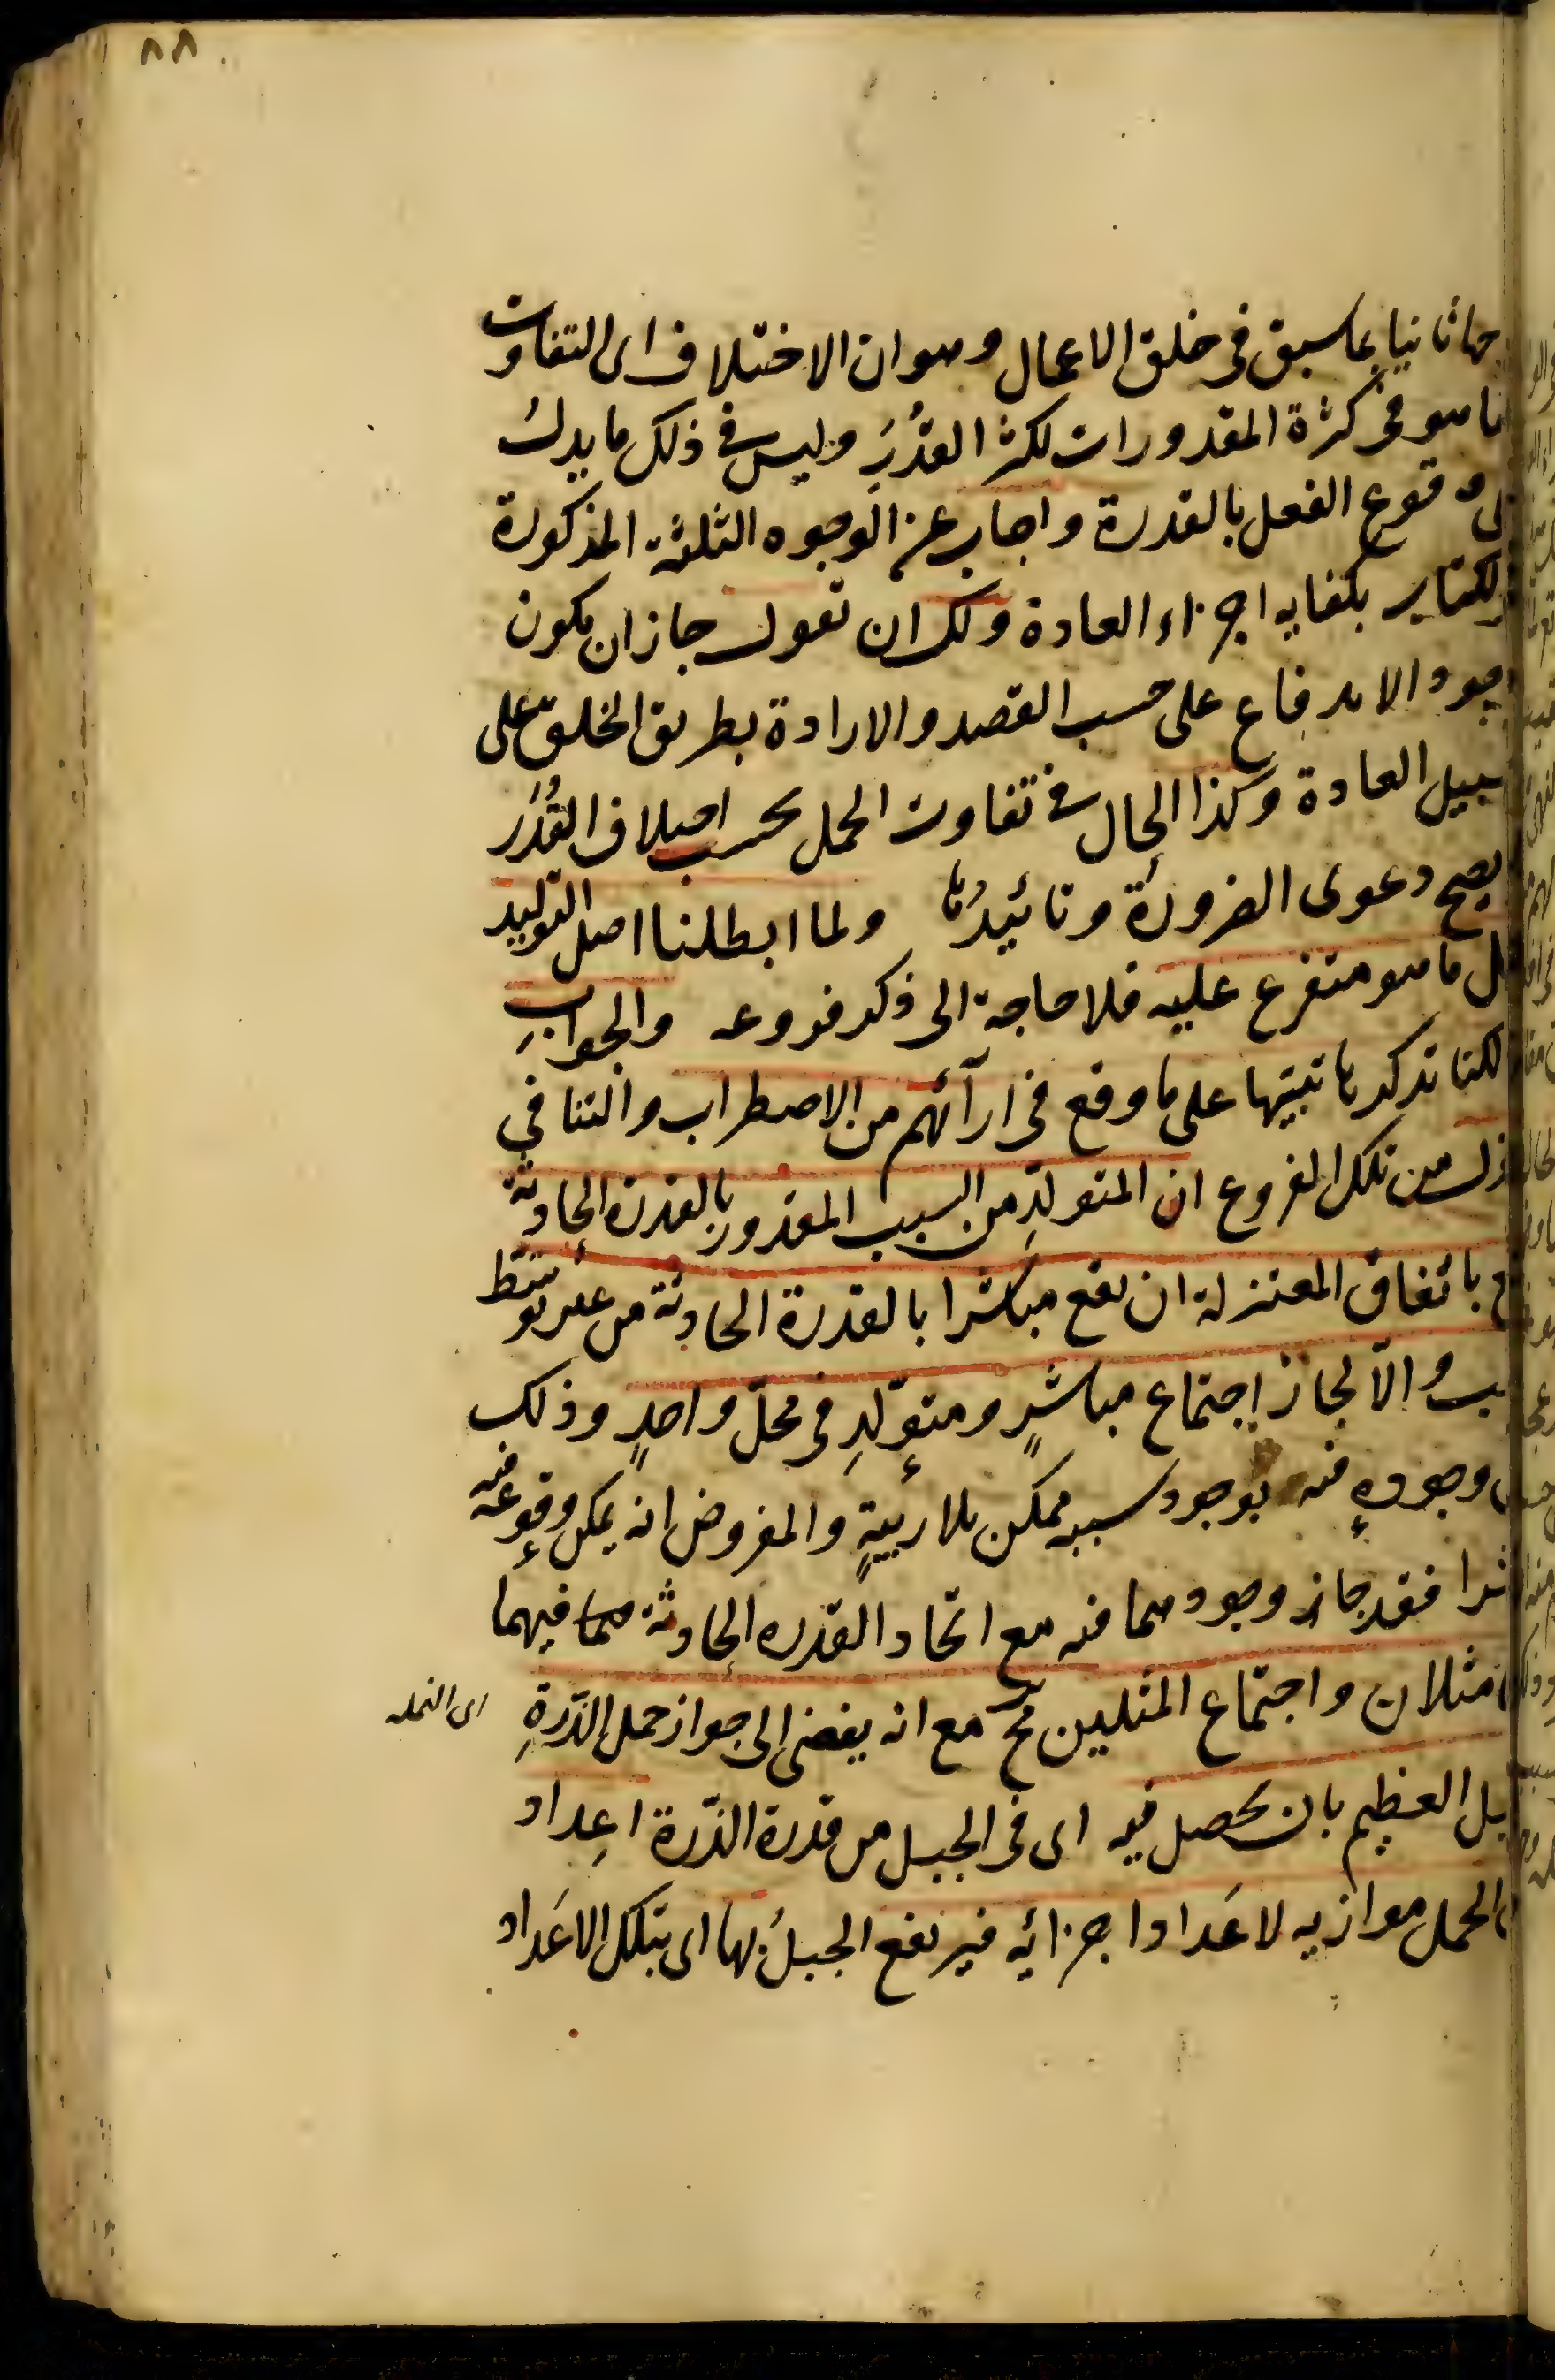 ٨٨
ثانيا بما سبق فى خلق الاعمال وهو ان الاختلاف اى التفاوت
هو فى كثرة المقدورات لكثر القُدَر وليس فى ذلك ما يدلُ
وقوع الفعل بالقدرة واجاب عن الوجوه الثلثة المذكورة
بكفاية اجراء العادة ولك ان تقول جاز ان يكون
الاندفاع على حسب القصد والارادة بطريق الخلق على
سبيل العادة وكذا الحال فى تفاوت الحمل بحسب اختلاف القُدَر
يصح دعوى الضرورة وتائيدُها ولما ابطلنا اصل التوليد
ما هو متفرع عليه فلا حاجة الى ذكر فروعه والجوابِ
لكنا نذكرها تنبيها على ما وقع فى ارآئهم من الاضطراب والتنافي
من تلك الفروع ان المتولدِ من السبب المقدور بالقدرة الحادثة
باتفاق المعتزلة ان يقع مباشرا بالقدرة الحادثة من غير توسّط
والاّ لجاز اجتماع مباشرٍ ومتوّلدِ فى محلّ واحدٍ وذلك
وجودهِ فيه بوجود سببه ممكن بلا ريبةٍ والمفروض انه يمكن وقوعه فيه
فقد جاز وجودهما فيه مع اتحاد القدره الحادثة فيهما
مثلان واجتماع المثلين مح مع انه يفضى الى جواز حمل الذّرةِ
اى النمله
العظيم بان يحصل فيه اى فى الجبل من قدرة الذّرة اعداد
الحمل موازيه لاعَداد اجزائه فيرتفع الجبلُ بها اى بتلك الاعَداد